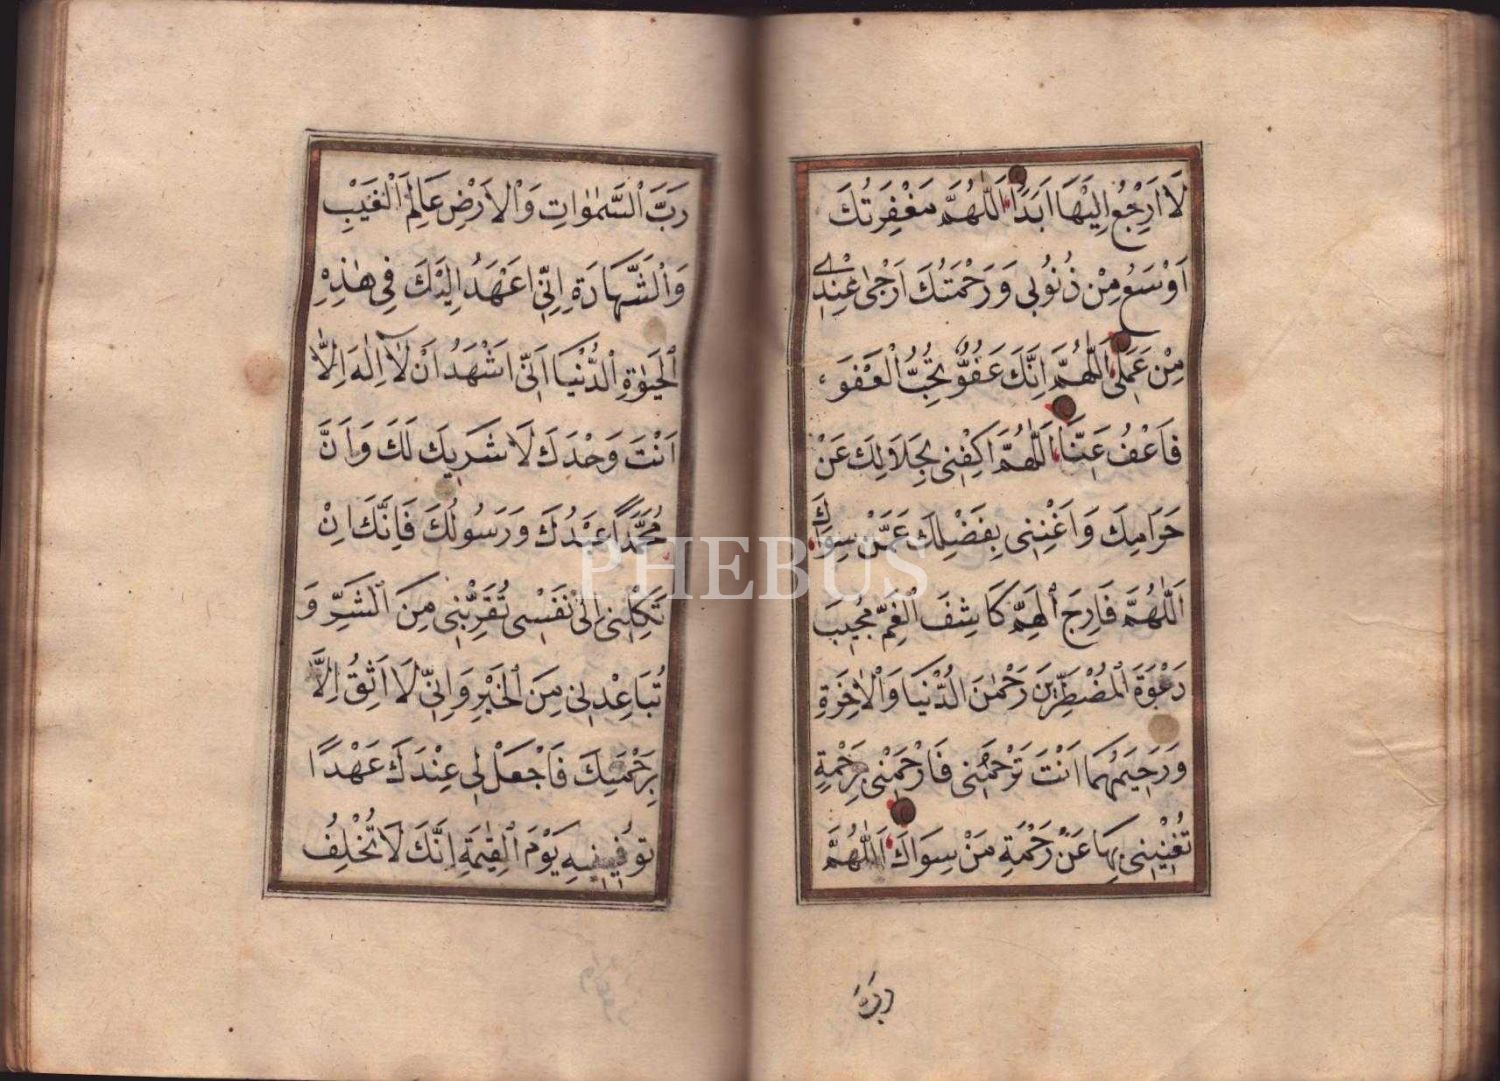 لَا اَرْجِعُ اِلَيْهَا اَبَدًا اَللّٰهُمَّ مَغْفِرَتُكَ
اَوْسَعُ مِنْ ذُنُوبِي وَرَحْمَتُكَ اَرْجٰى عِنْدِي
مِنْ عَمَلِي اَللّٰهُمَّ اِنَّكَ عَفُوٌّ تُحِبُّ الْعَفْوَ
فَاعْفُ عَنَّا اَللّٰهُمَّ اكْفِنِي بِحَلَالِكَ عَنْ
حَرَامِكَ وَاَغْنِنِي بِفَضْلِكَ عَمَّنْ سِوَاكَ
اَللّٰهُمَّ فَارِجَ الْهَمِّ كَاشِفَ الْغَمِّ مُجِيبَ
دَعْوَةِ الْمُضْطَرِّينَ رَحْمٰنَ الدُّنْيَا وَالْاٰخِرَةِ
وَرَحِيمَهُمَا اَنْتَ تَرْحَمُنِي فَارْحَمْنِي بِرَحْمَةٍ
تُغْنِينِي بِهَا عَنْ رَحْمَةِ مَنْ سِوَاكَ اَللّٰهُمَّ
رَبَّ
رَبَّ السَّمٰوَاتِ وَالْاَرْضِ عَالِمَ الْغَيْبِ
وَالشَّهَادَةِ اِنِّي اَعْهَدُ اِلَيْكَ فِي هٰذِهِ
الْحَيٰوةِ الدُّنْيَا اَنِّي اَشْهَدُ اَنْ لَٓا اِلٰهَ اِلَّا
اَنْتَ وَحْدَكَ لَا شَرِيكَ لَكَ وَاَنَّ
مُحَمَّدًا عَبْدُكَ وَرَسُولُكَ فَاِنَّكَ اِنْ
تَكِلْنِي اِلٰى نَفْسِي تُقَرِّبْنِي مِنَ الشَّرِّ وَ
تُبَاعِدْنِي مِنَ الْخَيْرِ وَاِنِّي لَا اَثِقُ اِلَّا
بِرَحْمَتِكَ فَاجْعَلْ لِي عِنْدَكَ عَهْدًا
تُوَفِّينِيهِ يَوْمَ الْقِيٰمَةِ اِنَّكَ لَا تُخْلِفُ
PHEBUS